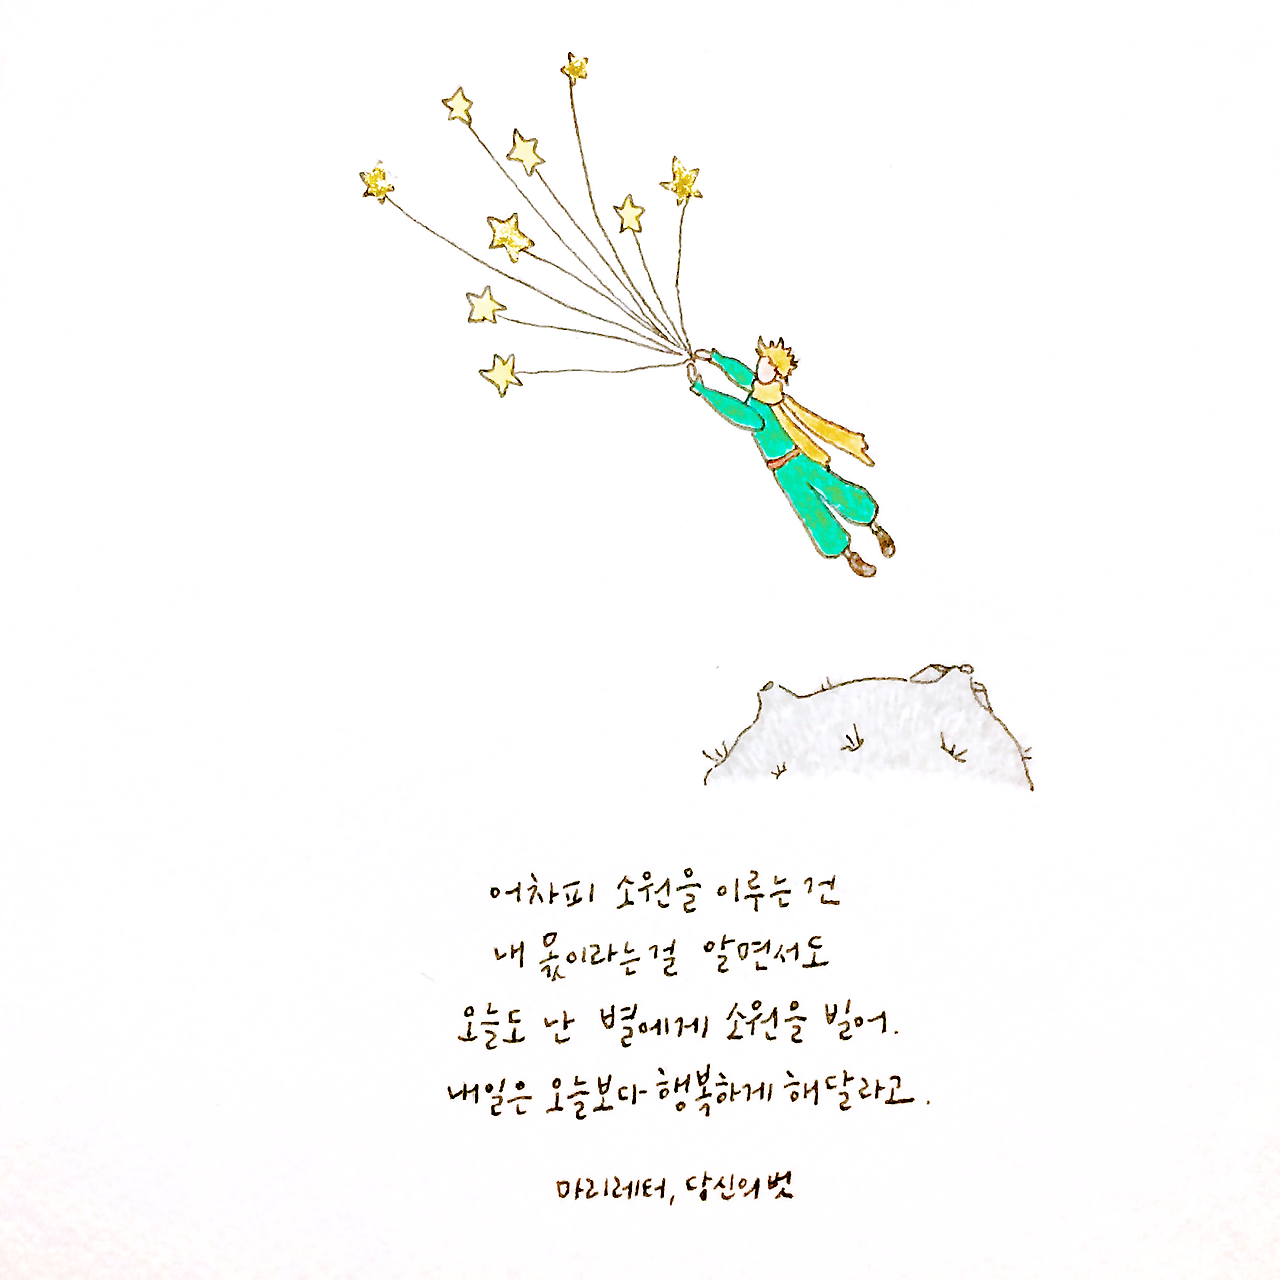 어차피 소원을 이루는 건
내 몫이라는 걸 알면서도
오늘도 난 별에게 소원을 빌어.
내일은 오늘보다 행복하게 해달라고.
마리레터, 당신의 벗